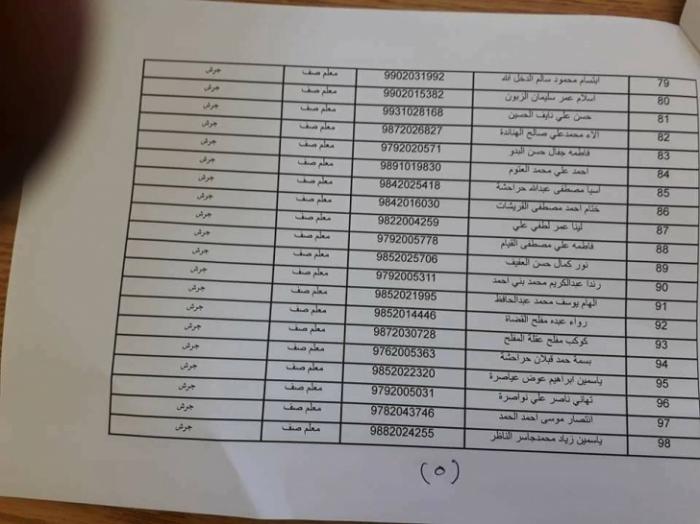 79 ابتسام محمود سالم الدخل الله 9902031992 معلم صف جرش
80 اسلام عمر سليمان الزبون 9902015382 معلم صف جرش
81 حسن علي نايف الحسين 9931028168 معلم صف جرش
82 الاء محمدعلي صالح الهناندة 9872026827 معلم صف جرش
83 فاطمه جفال حسن البدو 9792020571 معلم صف جرش
84 احمد علي محمد العتوم 9891019830 معلم صف جرش
85 اسيا مصطفى عبدالله حراحشة 9842025418 معلم صف جرش
86 ختام احمد مصطفى القريشات 9842016030 معلم صف جرش
87 لينا عمر لطفي علي 9822004259 معلم صف جرش
88 فاطمه علي مصطفى القيام 9792005778 معلم صف جرش
89 نور كمال حسن العفيف 9852025706 معلم صف جرش
90 رندا عبدالكريم محمد بني احمد 9792005311 معلم صف جرش
91 الهام يوسف محمد عبدالحافظ 9852021995 معلم صف جرش
92 رواء عبده مفلح القضاة 9852014446 معلم صف جرش
93 كوكب مفلح عقلة المفلح 9872030728 معلم صف جرش
94 بسمة حمد قبلان حراحشة 9762005363 معلم صف جرش
95 ياسمين ابراهيم عوض عياصرة 9852022320 معلم صف جرش
96 تهاني ناصر علي نواصرة 9792005031 معلم صف جرش
97 انتصار موسى احمد الحمد 9782043746 معلم صف جرش
98 ياسمين زياد محمدجاسر الناظر 9882024255 معلم صف جرش
(٥)